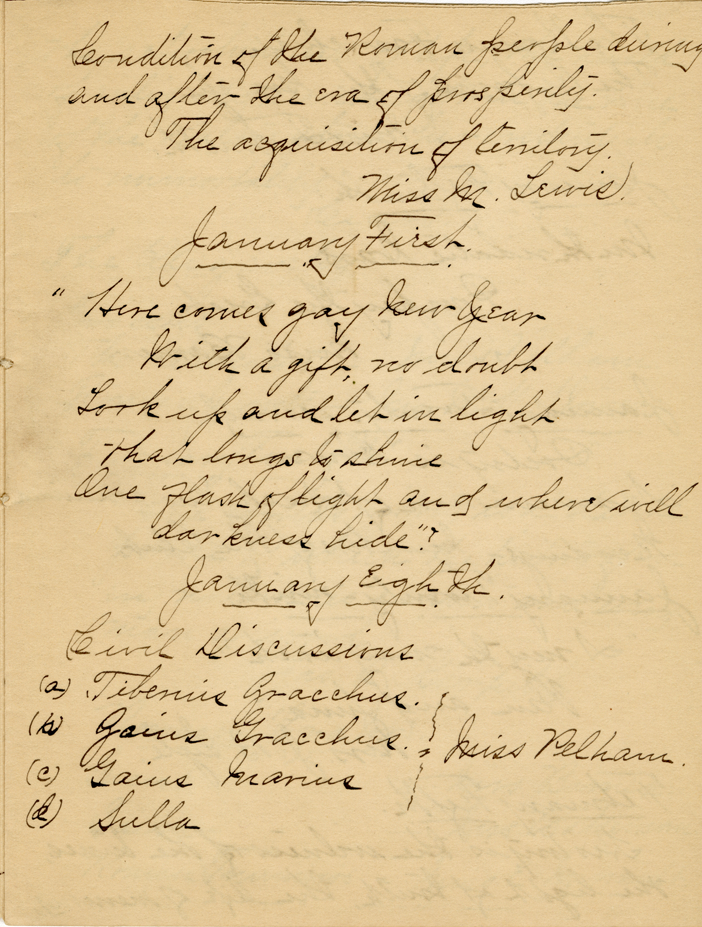 Condition of the Roman people during
and after the era of prosperity.
The acquisition of territory.
Miss M. Lewis.
January First.
" Here comes gay New Year
With a gift, no doubt
Look up and let in light
that longs to shine
One flash of light and where will
darkness hide"?
January Eighth.
Civil Discussions
(a) Tiberius Gracchus.
(b) Gaius Gracchus.
Miss Pelham.
(c) Gaius Marius
(d) Sulla